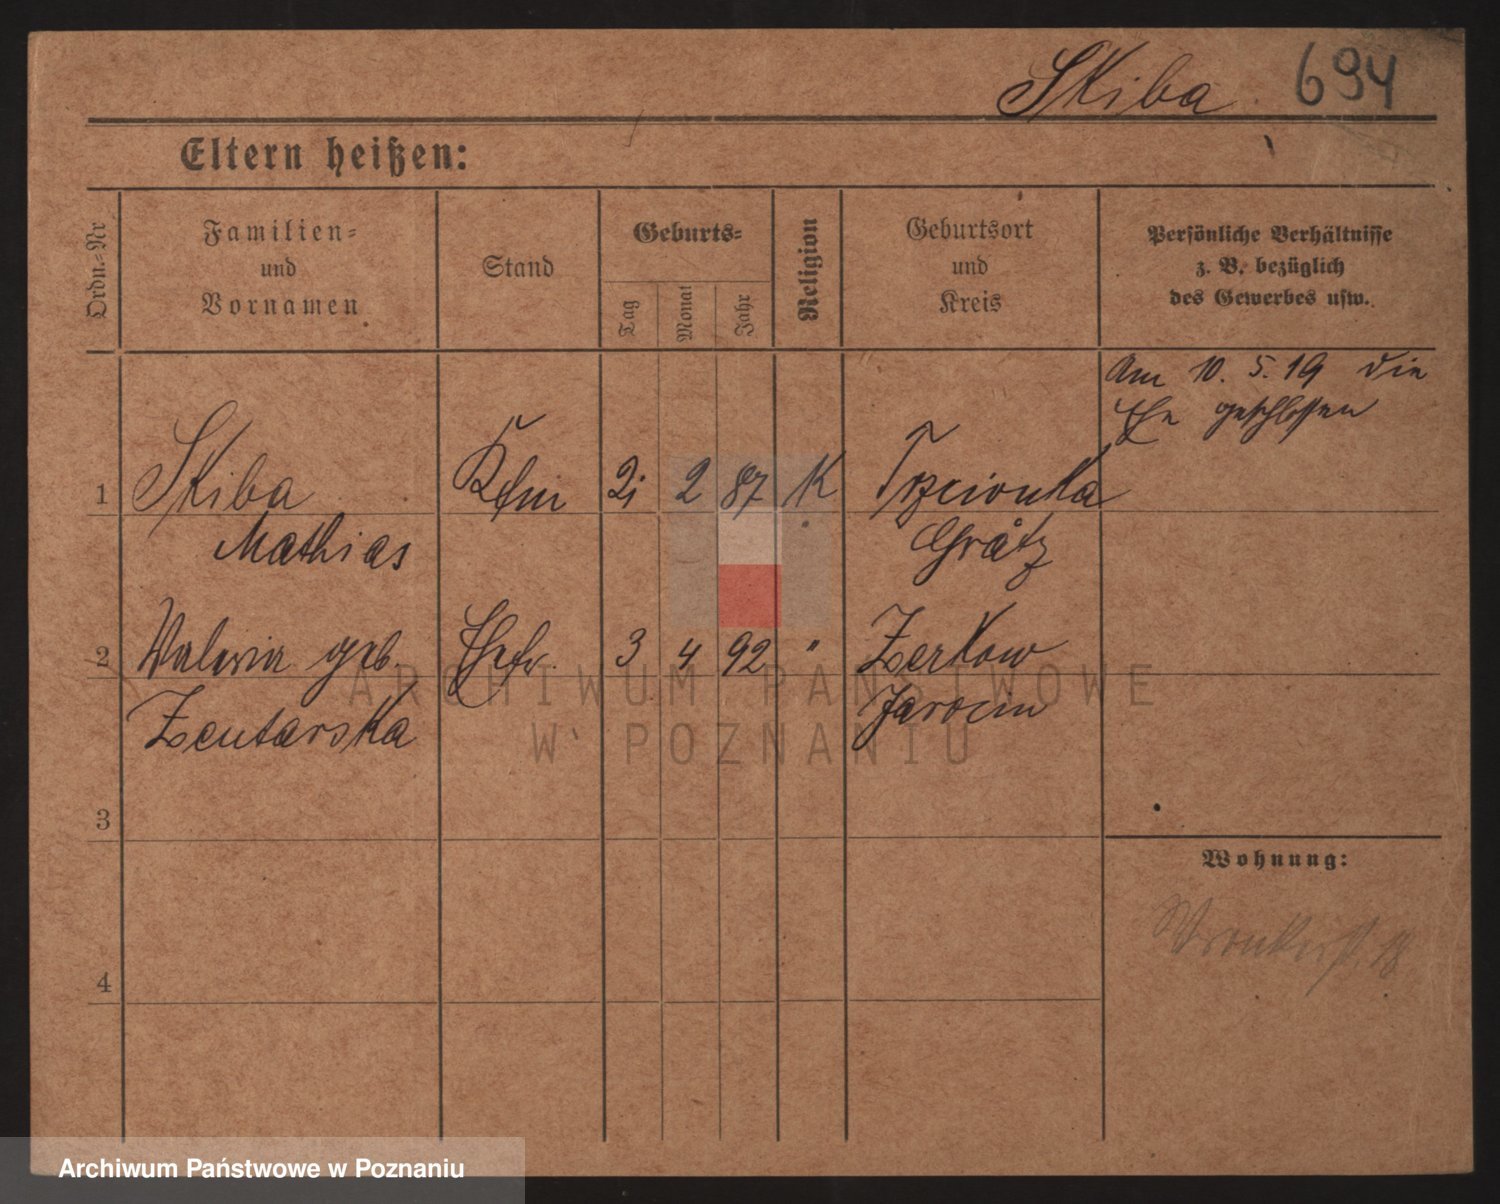 Skiba 694
Eltern heißen:
Ordn.-Nr
Familien-
und
Vornamen
Stand
Geburts-
Tag
Monat
Jahr
Religion
Geburtsort
und
Kreis
Persönliche Verhältnisse
z. B. bezüglich
des Gewerbes usw.
Am 10. 5. 19 die
Ehe geschlossen
1 Skiba 2 87 K Trzcionka
Mathias Grätz
2 Waleria geb. Ehefr. 3 4 92 " Zerkow
Zentarska Jarocin
3
4
Wohnung:
Wronkerst. 18
ARCHIWUM PAŃSTWOWE
W POZNANIU
Archiwum Państwowe w Poznaniu